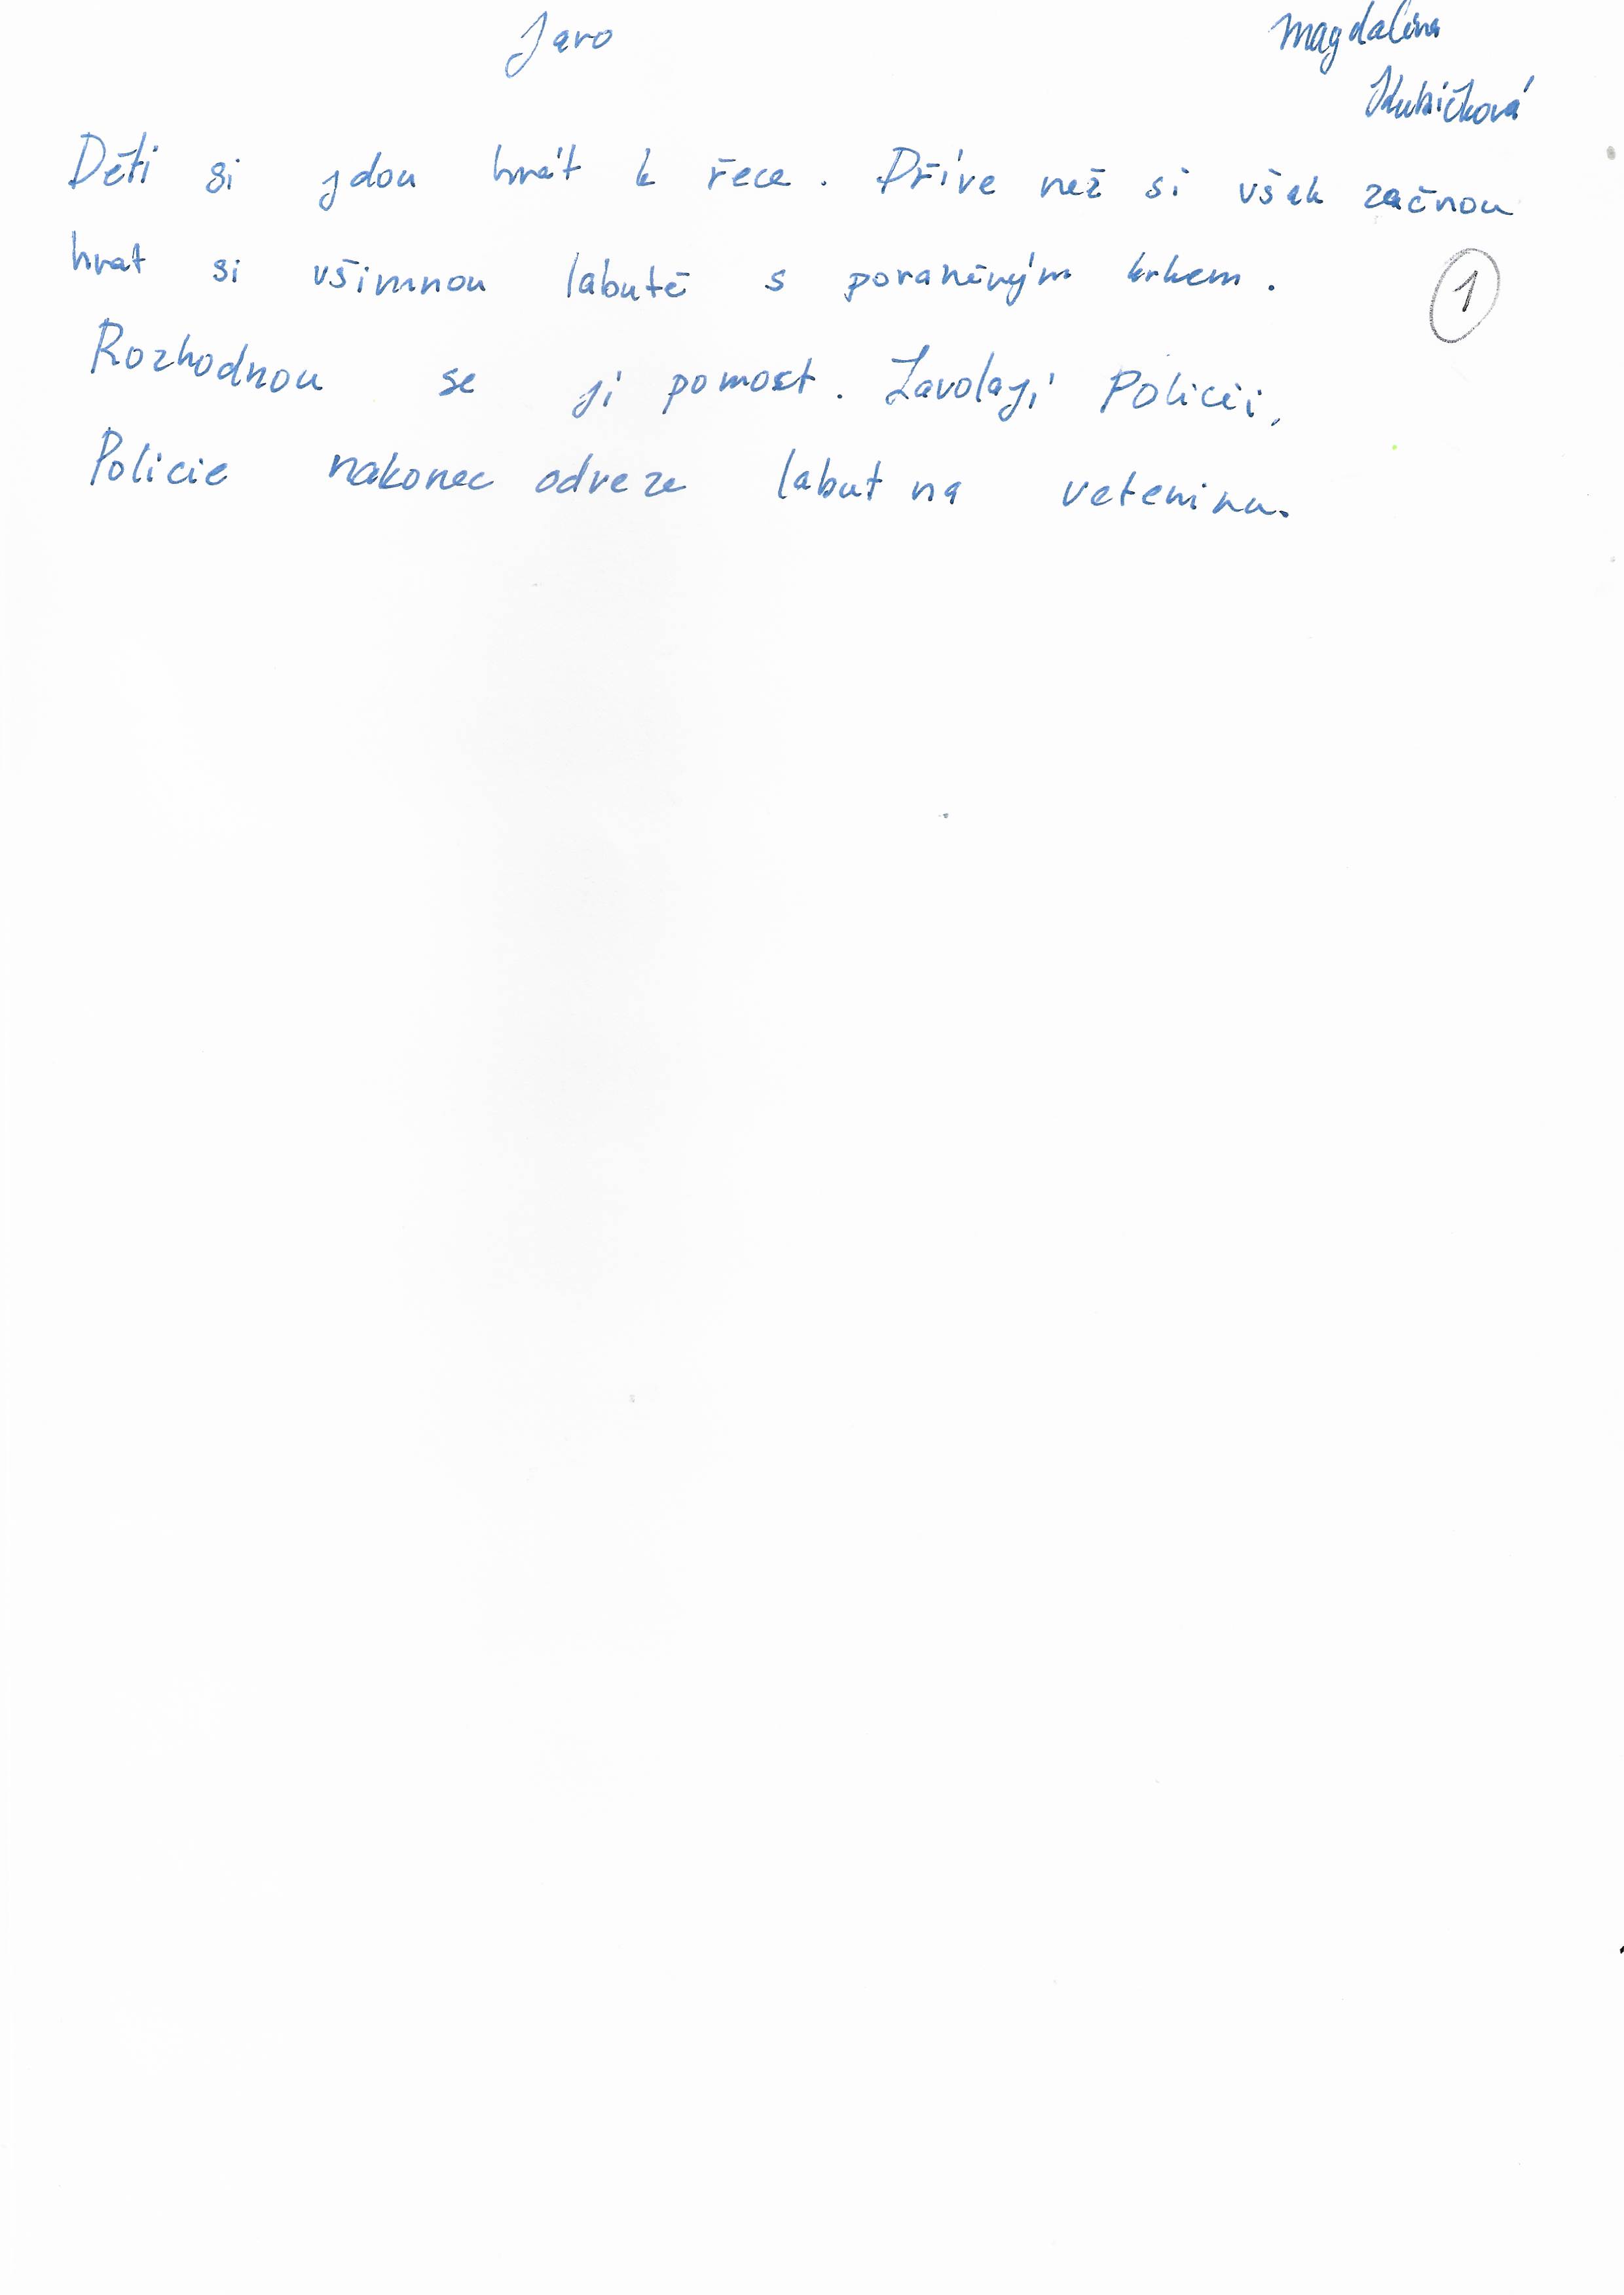 Jaro
Magdaléna
Kubíčková
Děti si jdou hrát k řece. Dříve než si však začnou
hrat si všimnou labutě s poraněným krkem.
1
Rozhodnou se jí pomoct. Zavolají Policii,
Policie nakonec odveze labut na veterinu.